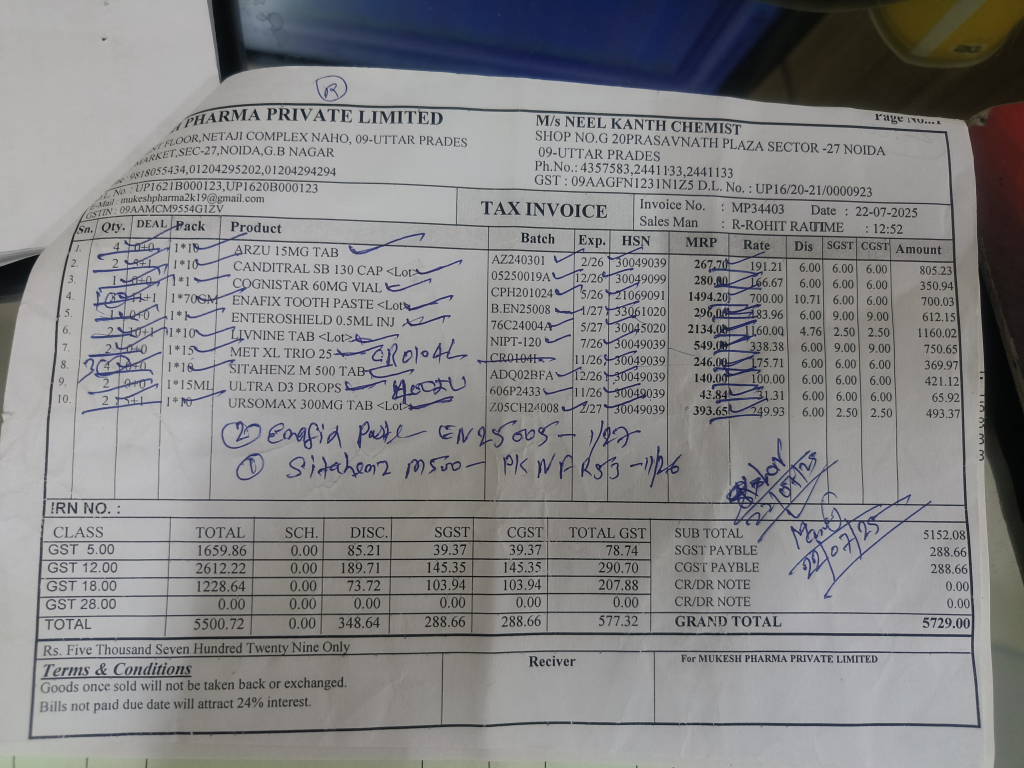 R
PHARMA PRIVATE LIMITED
FLOOR,NETAJI COMPLEX NAHO, 09-UTTAR PRADES
MARKET,SEC-27,NOIDA,G.B NAGAR
9818055434,01204295202,01204294294
No. : UP1621B000123,UP1620B000123
Mail : mukeshpharma2k19@gmail.com
GSTIN : 09AAMCM9554G1ZV
Page No...1
M/s NEEL KANTH CHEMIST
SHOP NO.G 20PRASAVNATH PLAZA SECTOR -27 NOIDA
09-UTTAR PRADES
Ph.No.: 4357583,2441133,2441133
GST : 09AAGFN1231N1Z5 D.L. No. : UP16/20-21/0000923
TAX INVOICE
Invoice No. : MP34403 Date : 22-07-2025
Sales Man : R-ROHIT RAUTIME : 12:52
Sn. Qty. DEAL Pack Product Batch Exp. HSN MRP Rate Dis SGST CGST Amount
1. 4 0+0 1*10 ARZU 15MG TAB AZ240301 2/26 30049039 267.70 191.21 6.00 6.00 6.00 805.23
2. 2 1*10 CANDITRAL SB 130 CAP <Lot> 05250019A 12/26 30049039 280.00 166.67 6.00 6.00 6.00 350.94
3. 1 0+0 1*1 COGNISTAR 60MG VIAL CPH201024 5/26 21069091 1494.20 700.00 10.71 6.00 6.00 700.03
4. 1*70GM ENAFIX TOOTH PASTE <Lot> B.EN25008 1/27 33061020 296.00 183.96 6.00 9.00 9.00 612.15
5. 1 0+0 1*1 ENTEROSHIELD 0.5ML INJ 76C24004A 5/27 30045020 2134.00 1160.00 4.76 2.50 2.50 1160.02
6. 1*10 LIVNINE TAB <Lot> NIPT-120 7/26 30049039 549.00 338.38 6.00 9.00 9.00 750.65
7. 2 0+0 1*15 MET XL TRIO 25 CR0104L 11/26 30049039 246.00 175.71 6.00 6.00 6.00 369.97
8. 4 0+0 1*10 SITAHENZ M 500 TAB ADQ02BFA 12/26 30049039 140.00 100.00 6.00 6.00 6.00 421.12
9. 2 0+0 1*15ML ULTRA D3 DROPS 606P2433 11/26 30049039 43.84 31.31 6.00 6.00 6.00 65.92
10. 2 1*10 URSOMAX 300MG TAB <Lot> Z05CH24008 2/27 30049039 393.65 249.93 6.00 2.50 2.50 493.37
② Enafix Paste EN25005 - 1/27
① Sitahenz M500 - PKNFR53 - 11/26
22/07/25
22/07/25
IRN NO. :
CLASS TOTAL SCH. DISC. SGST CGST TOTAL GST
GST 5.00 1659.86 0.00 85.21 39.37 39.37 78.74
GST 12.00 2612.22 0.00 189.71 145.35 145.35 290.70
GST 18.00 1228.64 0.00 73.72 103.94 103.94 207.88
GST 28.00 0.00 0.00 0.00 0.00 0.00 0.00
TOTAL 5500.72 0.00 348.64 288.66 288.66 577.32
SUB TOTAL 5152.08
SGST PAYBLE 288.66
CGST PAYBLE 288.66
CR/DR NOTE 0.00
CR/DR NOTE 0.00
GRAND TOTAL 5729.00
Rs. Five Thousand Seven Hundred Twenty Nine Only
Terms & Conditions
Goods once sold will not be taken back or exchanged.
Bills not paid due date will attract 24% interest.
Reciver
For MUKESH PHARMA PRIVATE LIMITED